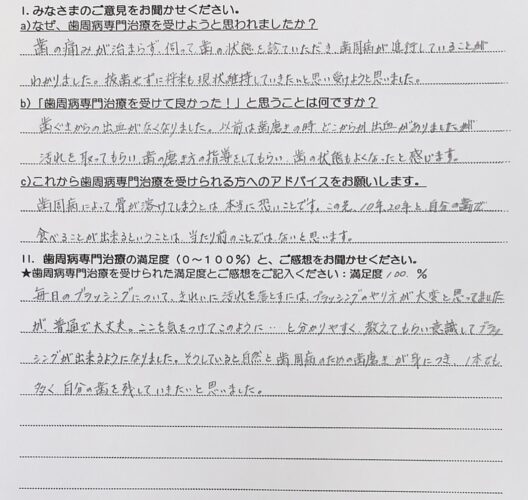 I. みなさまのご意見をお聞かせください。
a)なぜ、歯周病専門治療を受けようと思われましたか？
歯の痛みが治まらず、伺って歯の状態を診ていただき、歯周病が進行していることが
わかりました。抜歯せずに将来も現状維持していきたいと思い受けようと思いました。
b)「歯周病専門治療を受けて良かった！」と思うことは何ですか？
歯ぐきからの出血がなくなりました。以前は歯磨きの時、どこからか出血がありましたが
汚れを取ってもらい、歯の磨き方の指導をしてもらい、歯の状態もよくなったと感じます。
c)これから歯周病専門治療を受けられる方へのアドバイスをお願いします。
歯周病によって骨が溶けてしまうとは本当に恐いことです。この先、10年20年と自分の歯で
食べることが出来るということは、当たり前のことではないと思います。
II. 歯周病専門治療の満足度（0～100％）と、ご感想をお聞かせください。
★歯周病専門治療を受けられた満足度とご感想をご記入ください：満足度 100 ％
毎日のブラッシングについて、きれいに汚れを落とすには、ブラッシングのやり方が大変と思ってましたが
が、普通で大丈夫。ここを気をつけてこのように…と分かりやすく、教えてもらい意識してブラッ
シングが出来るようになりました。そうしていると自然と歯周病のための歯磨きが身につき、1本でも
多く自分の歯を残していきたいと思いました。